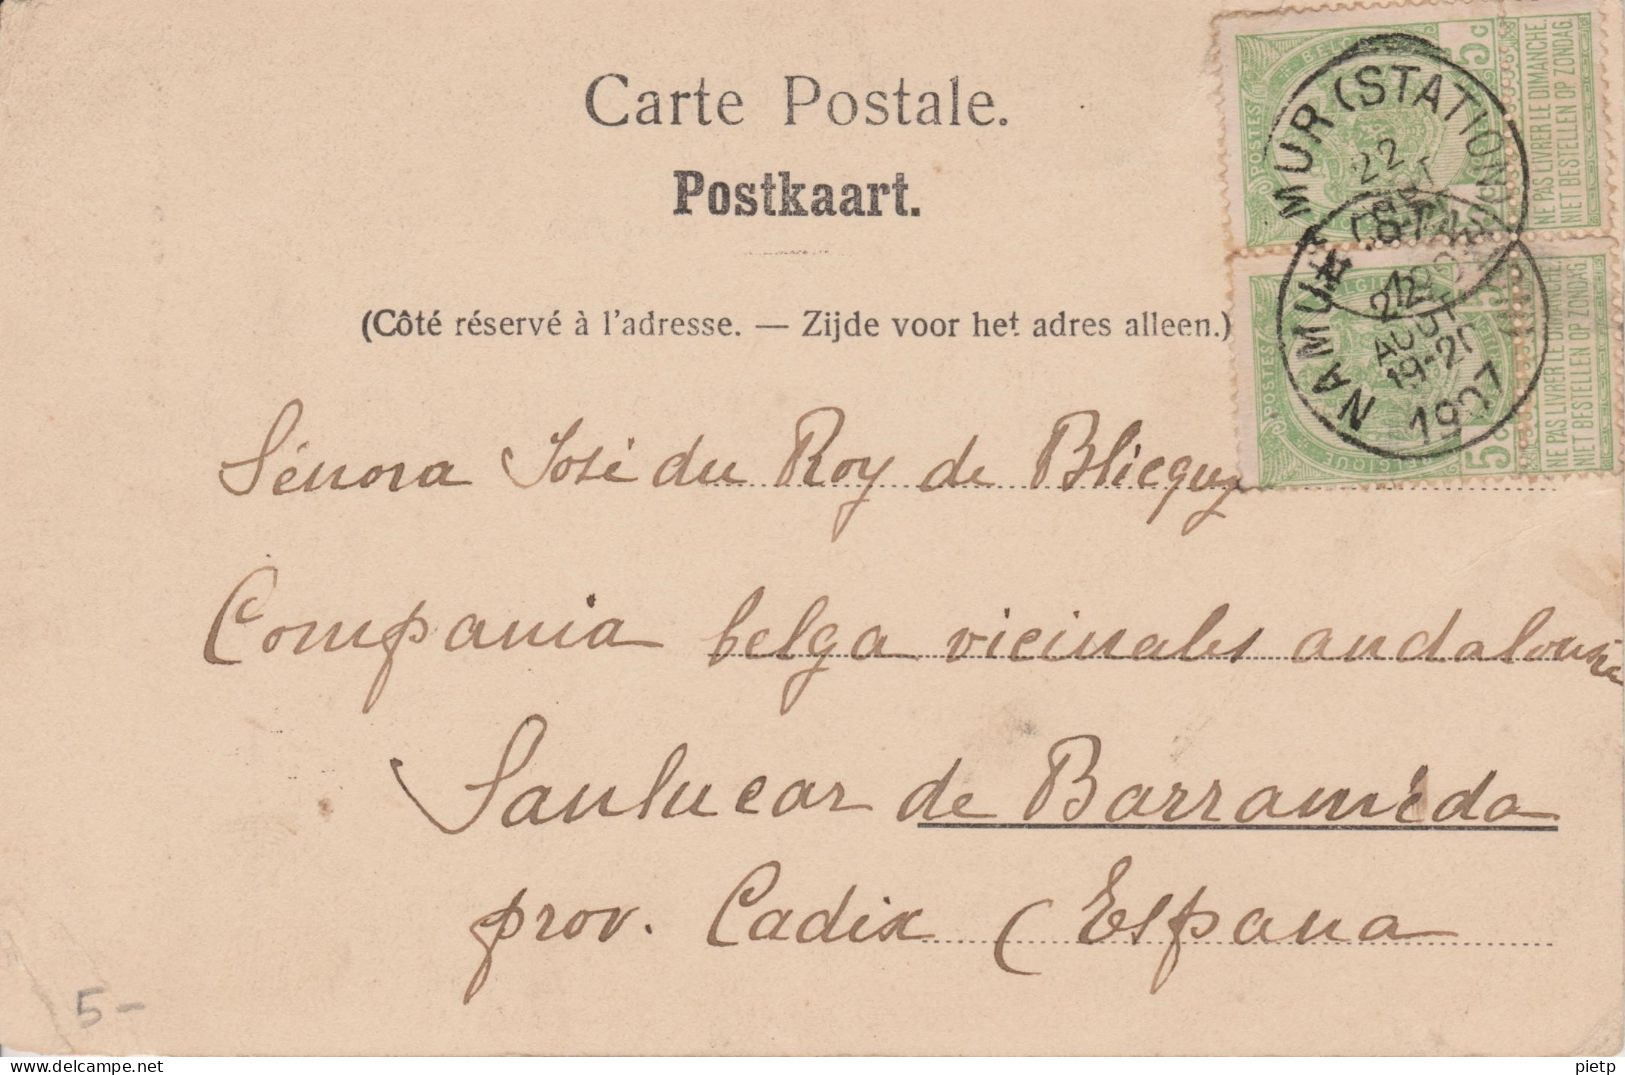 Carte Postale.
Postkaart.
(Côté réservé à l'adresse. — Zijde voor het adres alleen.)
POSTES
5c
NE PAS LIVRER LE DIMANCHE.
NIET BESTELLEN OP ZONDAG.
MUR (STATION)
22
POSTES
BELGIQUE
5c
NE PAS LIVRER LE DIMANCHE.
NIET BESTELLEN OP ZONDAG.
NAMUR (STATION)
22
AOUT
19-20
1907
Sénora José du Roy de Blicquy
Compania belga vicinales andalouse
Sanlucar de Barraméda
prov. Cadix (Espana
5-
pietp